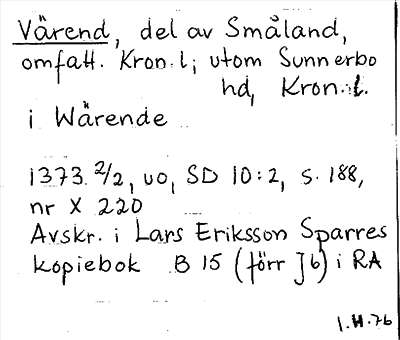 Värend, del av Småland,
omfatt. Kron. l; utom Sunnerbo
hd, Kron. l.
i Wärende
1373 2/2, uo, SD 10:2, s. 188,
nr X 220
Avskr. i Lars Eriksson Sparres
kopiebok B 15 (förr J6) i RA
1.H.76